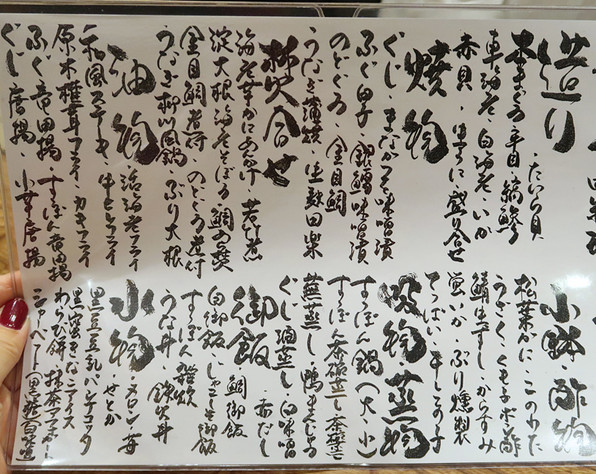 造り
たいら貝
本まぐろ・平目・縞鯵
車海老・白海老・いか
赤貝・生うに・盛り合せ
焼物
ぐじ・まながつを味噌漬
ふぐ白子・銀鱈味噌漬
のどぐろ・金目鯛
うなぎ蒲焼
炊合せ
海老芋かにあんかけ・若竹煮
淀大根・海老そぼろ・鯛あら焚
金目鯛煮付・のどぐろ煮付
うなぎ柳川風鍋・ぶり大根
油物
活海老フライ
和風ステーキ・牛ヒレフライ
原木椎茸フライ・カキフライ
ふぐ竜田揚・すっぽん竜田揚
ぐじ唐揚・小芋唐揚
小鉢・酢物
松葉かに・このわた
うざく・くもこポン酢
鯖生ずし・からすみ
蛍いか・ぶり燻製
てっぴ・干しこの子
吸物・蒸物
すっぽん鍋(大・小)
すっぽん茶碗蒸し・茶碗蒸し
蕪蒸し・鴨まんじゅう
ぐじ酒蒸し・白味噌
赤だし
御飯
鯛御飯
白御飯・じゃこ御飯
すっぽん雑炊
うな丼
水物
メロン・苺
せとか
黒豆豆乳パンナコッタ
黒蜜きなこアイス
わらび餅・抹茶アイス
シャーベット